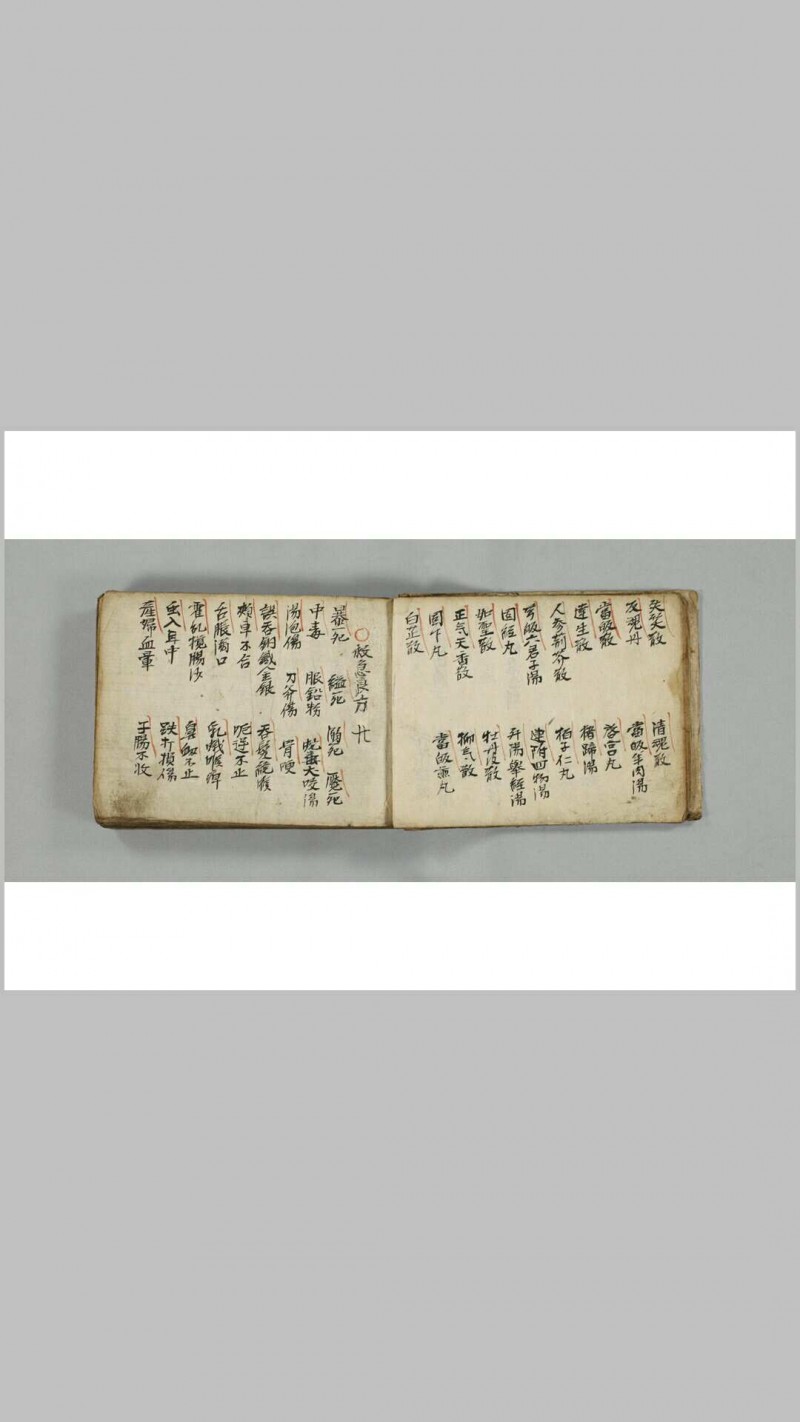 失笑散 清魂散
反魂丹 當皈羊肉湯
當皈散 啓宮丸
達生散 猪蹄湯
人參荊芥散 柏子仁丸
芎皈六君子湯 連附四物湯
固經丸 升陽舉經湯
如聖散 牡丹皮散
正气天香散 抑气散
固下丸 當皈龍丸
白芷散
○救急良方 廿
暴死 縊死 溺死 魘死
中毒 服鉛粉 蛇虫犬咬傷
湯泡傷 刀斧傷 骨哽
誤吞銅鐵金銀 吞髮繞喉
頰車不合 呃逆不止
舌脹滿口 乳蛾喉痺
霍乱攪腸沙 鼻衄不止
虫入耳中 跌打損傷
產婦血暈 子腸不收